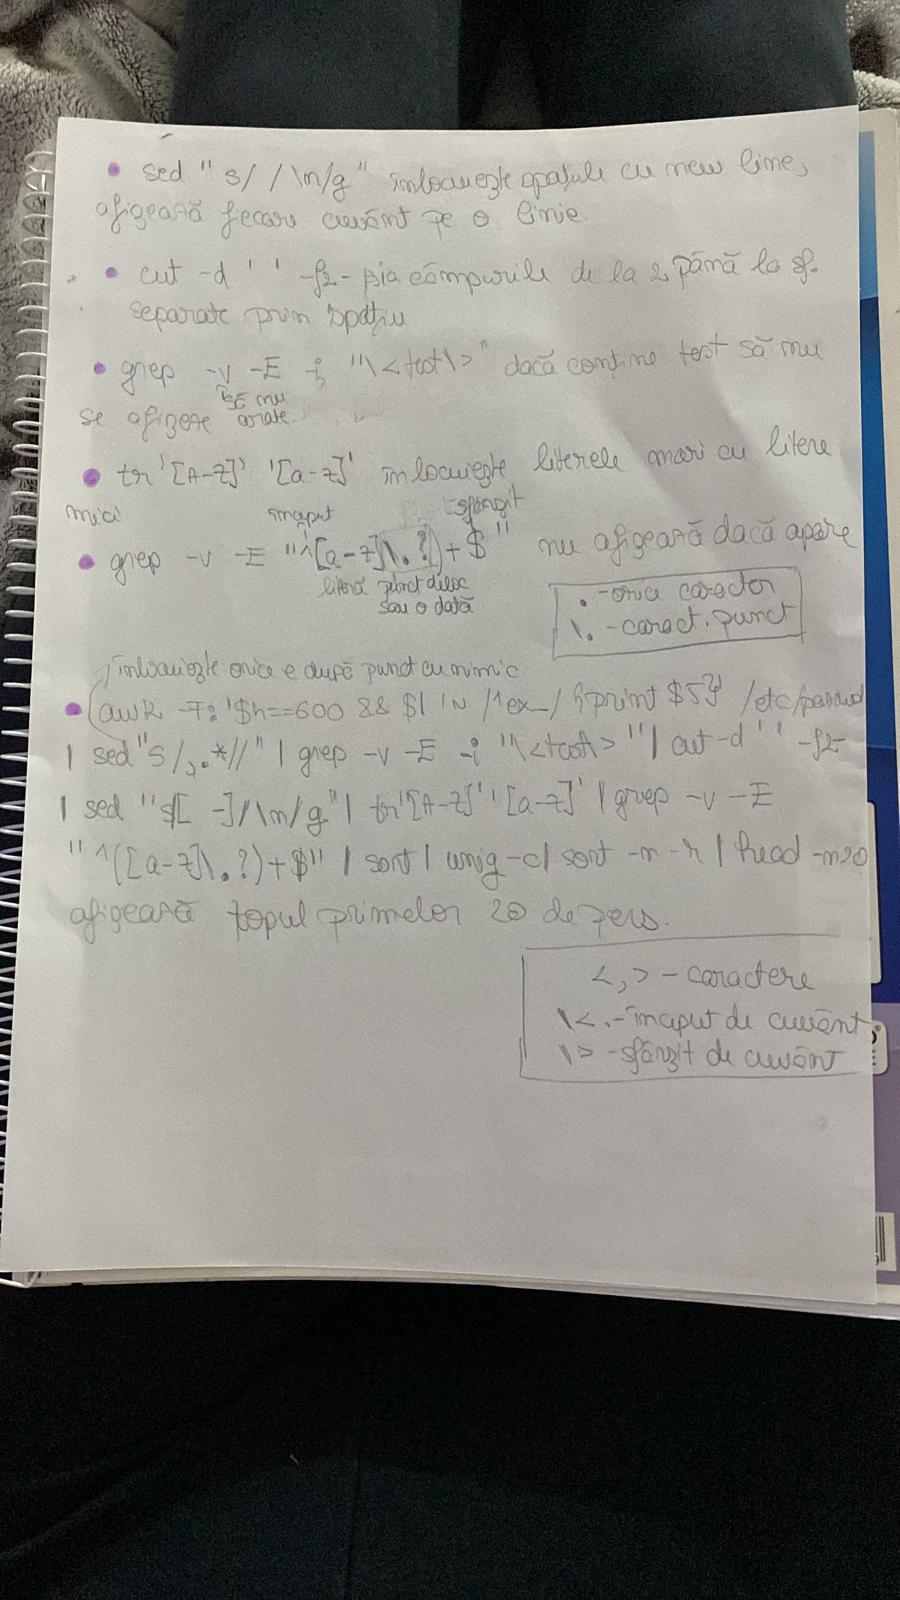 • sed "s/ /\n/g" înlocuiește spațiile cu new line,
afișează fiecare cuvânt pe o linie.
• cut -d ' ' -f2- ia câmpurile de la 2 până la sf.
separate prin spațiu
• grep -v -E -i "\<test\>" dacă conține test să nu
să nu
se afișeze arate.
• tr '[A-Z]' '[a-z]' înlocuiește literele mari cu litere
mici început sfârșit
• grep -v -E "^([a-z]\.?)+$" nu afișează dacă apare
literă punct deloc
sau o dată
. - orice caracter
\. - caract. punct
înlocuiește orice e după punct cu nimic
• awk -F: '$4==600 && $1 ~ /^ex_/ {print $5}' /etc/passwd
| sed "s/,.*//" | grep -v -E -i "\<test> " | cut -d ' ' -f2-
| sed "s/[ -]/\n/g" | tr '[A-Z]' '[a-z]' | grep -v -E
"^([a-z]\.?)+$" | sort | uniq -c | sort -n -r | head -n20
afișează topul primelor 20 de pers.
<, > - caractere
\< - început de cuvânt
\> - sfârșit de cuvânt